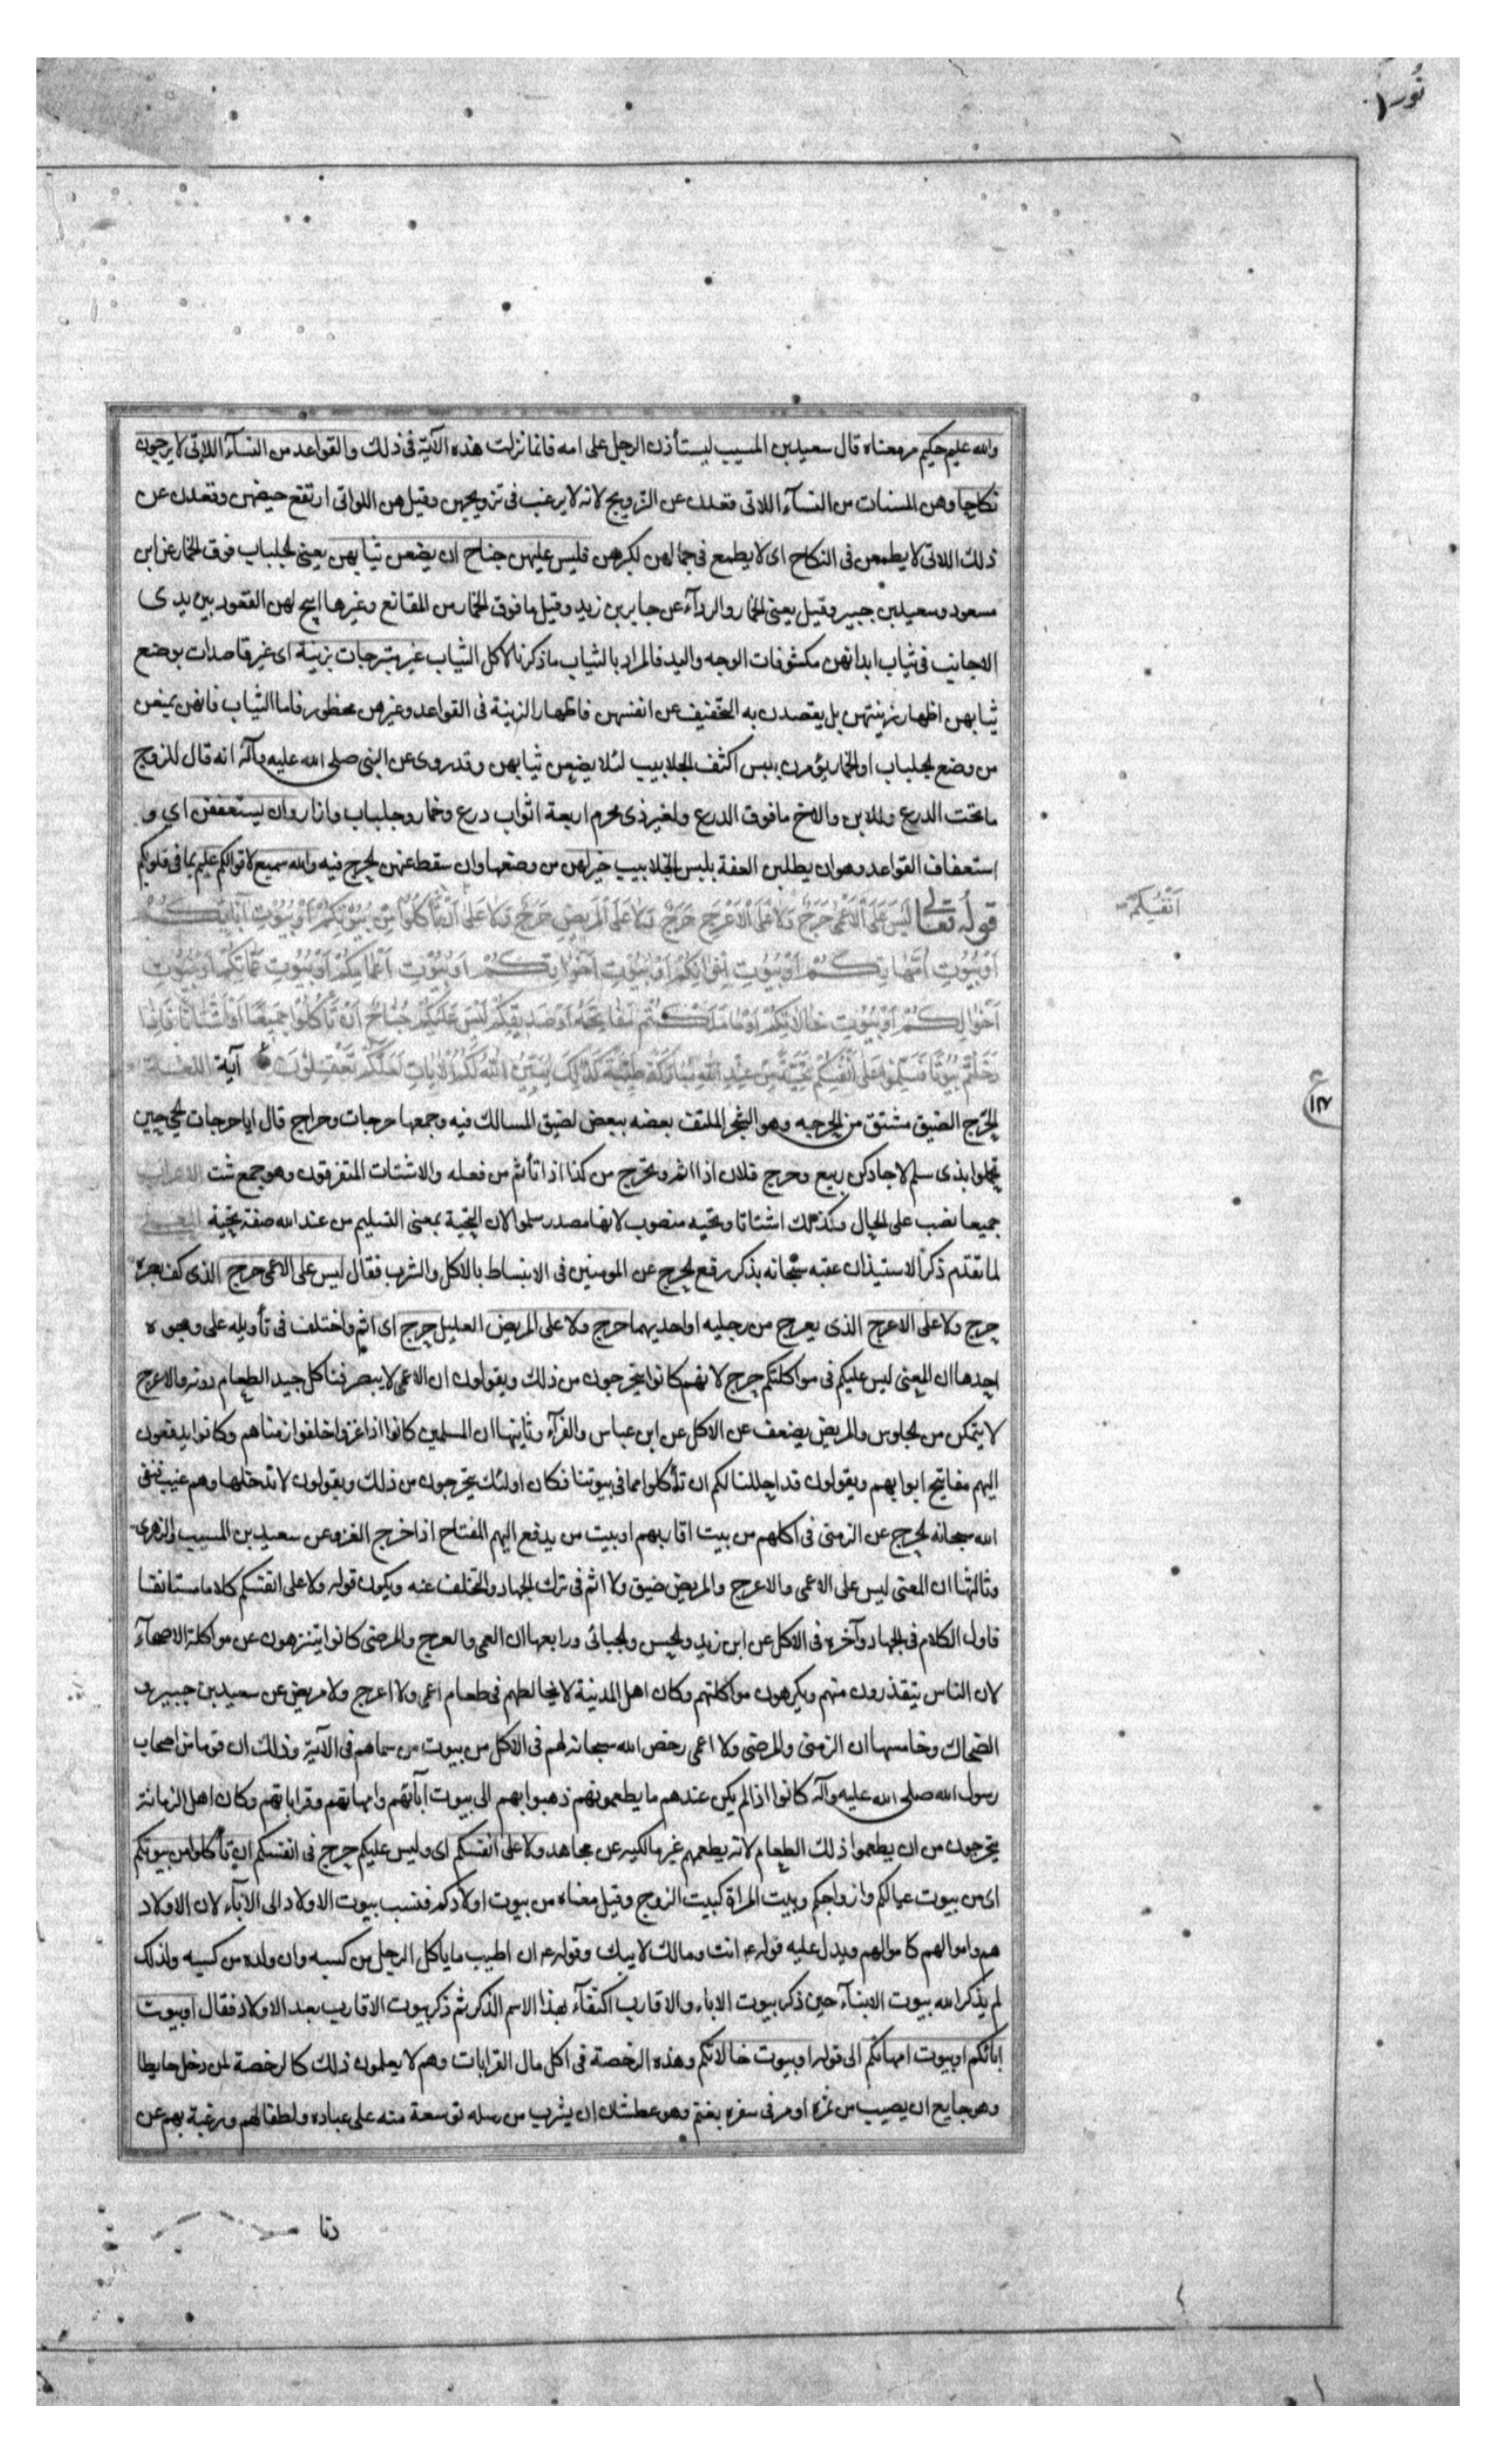 نور
والله عليم حكيم مر معناه قال سعيد بن المسيب ليستأذن الرجل على امه فانما نزلت هذه الآية فى ذلك والقواعد من النسآء اللاتى لا يرجون
نكاحا وهن المسنات من النسآء اللاتى قعدن عن التزويج لانه لا يرغب فى تزويجهن وقيل هن اللواتى ارتفع حيضهن وقعدن عن
ذلك اللاتى لا يطمعن فى النكاح اى لا يطمع فى جمالهن لكبرهن فليس عليهن جناح ان يضعن ثيابهن يعنى الجلباب فوق الخمار عن ابن
مسعود وسعيد بن جبير وقيل يعنى الخمار والردآء عن جابر بن زيد وقيل ما فوق الخمار من المقانع وغيرها ابيح لهن القعود بين يدى
الاجانب فى ثياب ابدانهن مكشوفات الوجه واليد فالمراد بالثياب ما ذكرنا لا كل الثياب غير متبرجات بزينة اى غير قاصدات بوضع
ثيابهن اظهار زينتهن بل يقصدن به التخفيف عن انفسهن فاظهار الزينة فى القواعد وغيرهن محظور فاما الثياب فانهن يمنعن
من وضع الجلباب او الخمار يؤمرن بلبس اكثف الجلابيب لئلا يضعن ثيابهن وقد روى عن النبى صلى الله عليه وآله انه قال للزوج
ما تحت الدرع وللابن والاخ ما فوق الدرع ولغير ذى محرم اربعة اثواب درع وخمار وجلباب وازار وان يستعففن اى و
استعفاف القواعد وهو ان يطلبن العفة بلبس الجلابيب خير لهن من وضعها وان سقط عنهن الحرج فيه والله سميع لاقوالكم عليم بما فى قلوبكم
قوله تعالى ليس على الاعمى حرج ولا على الاعرج حرج ولا على المريض حرج ولا على ان تأكلوا من بيوتكم او بيوت آبائكم
انفسكم
او بيوت امهاتكم او بيوت اخوانكم او بيوت اخواتكم او بيوت اعمامكم او بيوت عماتكم او بيوت
اخوالكم او بيوت خالاتكم او ما ملكتم مفاتحه او صديقكم ليس عليكم جناح ان تأكلوا جميعا او اشتاتا فاذا
دخلتم بيوتا فسلموا على انفسكم تحية من عند الله مباركة طيبة كذلك يبين الله لكم الآيات لعلكم تعقلون آية اللغة
الحرج الضيق مشتق من الحرجه وهو الشجر الملتف بعضه ببعض لضيق المسالك فيه وجمعها حرجات وحراج قال ايا حرجات الحى حين
تحملوا بذى سلم لا جادكن ربيع وحرج فلان اذا اثم وتحرج من كذا اذا تأثم من فعله والاشتات المتفرقون وهو جمع شت الاعراب
جميعا نصب على الحال وكذلك اشتاتا وتحيه منصوب لانها مصدر سلموا لان التحية بمعنى التسليم من عند الله صفة تحية المعنى
لما تقدم ذكر الاستيذان عقبه سبحانه بذكر رفع الحرج عن المومنين فى الانبساط بالاكل والشرب فقال ليس على الاعمى حرج الذى كف بصره
حرج ولا على الاعرج الذى يعرج من رجليه او احديهما حرج ولا على المريض العليل حرج اى اثم واختلف فى تأويله على وجوه
احدها ان المعنى ليس عليكم فى مواكلتكم حرج لانهم كانوا يتحرجون من ذلك ويقولون ان الاعمى لا يبصر فناكل جيد الطعام دونه والاعرج
لا يتمكن من الجلوس والمريض يضعف عن الاكل عن ابن عباس والفرآء وثانيها ان المسلمين كانوا اذا غزوا خلفوا زمناهم وكانوا يدفعون
اليهم مفاتيح ابوابهم ويقولون قد احللنا لكم ان تأكلوا مما فى بيوتنا فكان اولئك يتحرجون من ذلك ويقولون لا ندخلها وهم غيب فنفى
الله سبحانه الحرج عن الزمنى فى اكلهم من بيت اقاربهم او بيت من يدفع اليهم المفتاح اذا خرج الغزو عن سعيد بن المسيب والزهرى
وثالثها ان المعنى ليس على الاعمى والاعرج والمريض ضيق ولا اثم فى ترك الجهاد والتخلف عنه ويكون قوله ولا على انفسكم كلاما مستانفا
فاول الكلام فى الجهاد وآخره فى الاكل عن ابن زيد والحسن والجبائى ورابعها ان العمى والعرج والمرضى كانوا يتنزهون عن مواكلة الاصحآء
لان الناس يتقذرون منهم ويكرهون مواكلتهم وكان اهل المدينة لا يخالطهم فى طعام اعمى ولا اعرج ولا مريض عن سعيد بن جبير و
الضحاك وخامسها ان الزمنى والمرضى ولا اعمى رخص الله سبحانه لهم فى الاكل من بيوت من سماهم فى الآية وذلك ان قوما من اصحاب
رسول الله صلى الله عليه وآله كانوا اذا لم يكن عندهم ما يطعمونهم ذهبوا بهم الى بيوت آبآئهم وامهاتهم وقراباتهم وكان اهل الزمانة
يتحرجون من ان يطعموا ذلك الطعام لانه يطعمهم غير مالكيه عن مجاهد ولا على انفسكم اى وليس عليكم حرج فى انفسكم ان تأكلوا من بيوتكم
اى من بيوت عيالكم وازواجكم وبيت المراة كبيت الزوج وقيل معناه من بيوت اولادكم فنسب بيوت الاولاد الى الآبآء لان الاولاد
هم واموالهم كاموالهم ويدل عليه قوله ع انت ومالك لابيك وقوله ع ان اطيب ما ياكل الرجل من كسبه وان ولده من كسبه ولذلك
لم يذكر الله بيوت الابنآء حين ذكر بيوت الاباء والاقارب اكتفآء بهذا الاسم الذكر ثم ذكر بيوت الاقارب بعد الاولاد فقال او بيوت
ابائكم او بيوت امهاتكم الى قوله او بيوت خالاتكم وهذه الرخصة فى اكل مال القرابات وهم لا يعلمون ذلك كالرخصة لمن دخل حايطا
وهو جايع ان يصيب من ثمره او مر فى سفره بغنم وهو عطشان ان يشرب من رسله توسعة منه على عباده ولطفا لهم ورغبة بهم عن
دنا